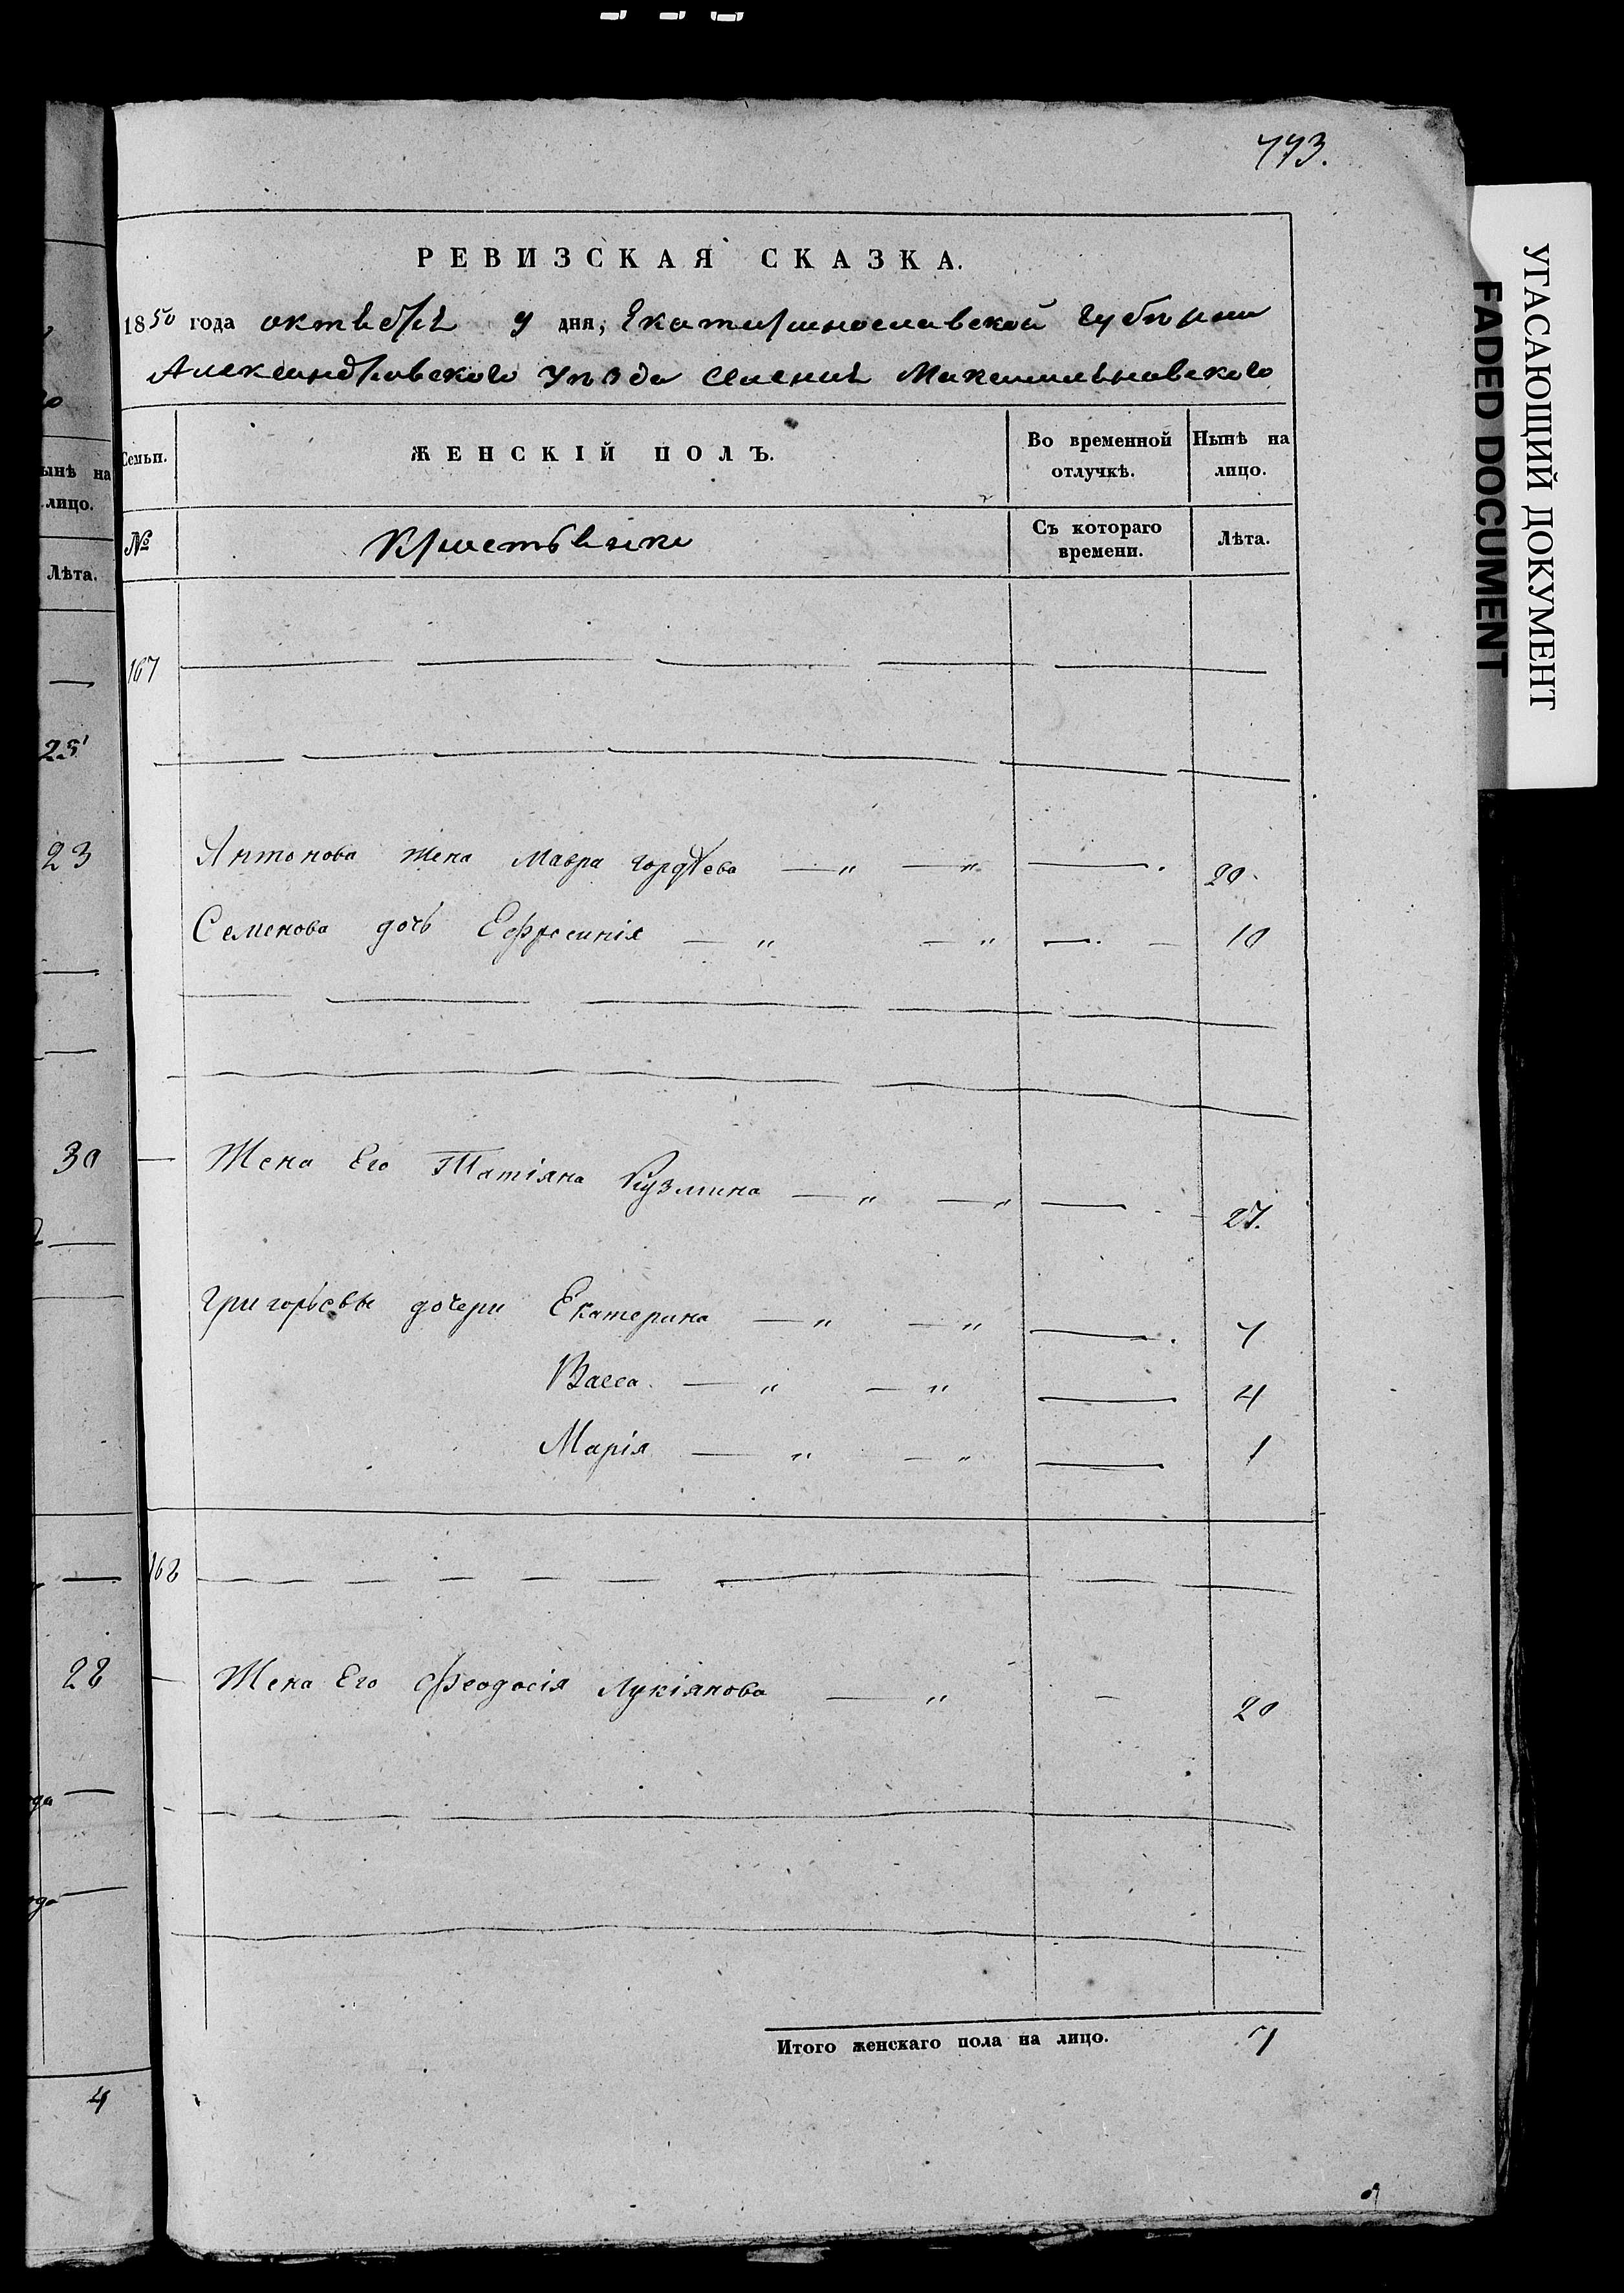 773.
РЕВИЗСКАЯ СКАЗКА.
1850 года октября 9 дня, Екатеринославской Губернии
Александровского Уезда селения Максимильяновского
Семьи. ЖЕНСКІЙ ПОЛЪ. Во временной отлучкѣ. Нынѣ на лицо.
№ Крестьянки Съ котораго времени. Лѣта.
167
Антонова жена Мавра Гордѣева — " — " — 20
Семенова дочь Ефросинія — " — " — 10
Жена Его Татіяна Кузмина — " — " — 27.
Григорьевы дочери Екатерина — " — " — 7
Васса — " — " — 4
Марія — " — " — 1
168
Жена Его Феодосія Лукіянова — " — 20
Итого женскаго пола на лицо. 7
ынѣ на
лицо.
Лѣта.
25
23
30
28
4
УГАСАЮЩИЙ ДОКУМЕНТ
FADED DOCUMENT